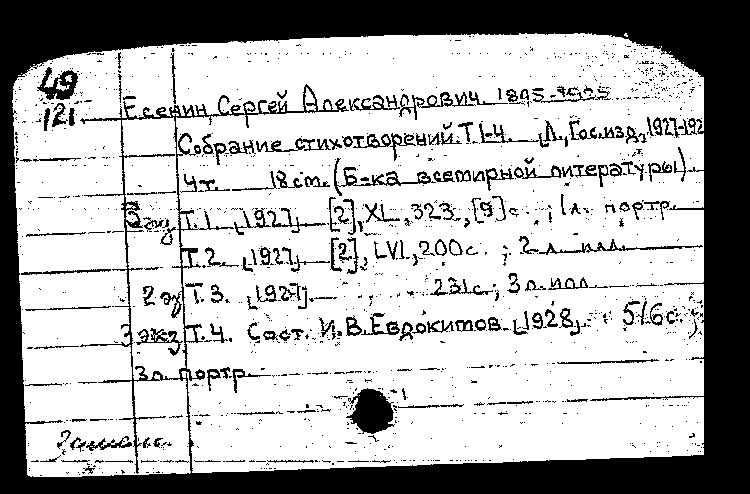 49
121. Есенин, Сергей Александрович. 1895-1925
Собрание стихотворений. Т.1-4. [Л., Гос.изд., 1927-192
4 т. 18 см. (Б-ка всемирной литературы).
3 экз Т.1. [1927]. [2], XL, 323, [9] с.; 1 л. портр.
Т.2. [1927]. [2], LVI, 200 с.; 2 л. илл.
2 эк Т.3. [1927]. 231 с.; 3 л. илл.
3 экз Т.4. Сост. И.В.Евдокимов [1928]. 516 с.;
3 л. портр.